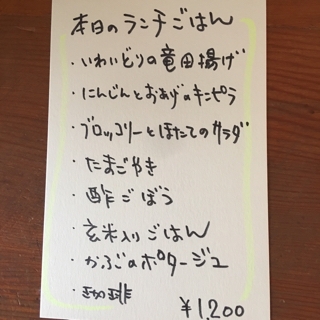 本日のランチごはん
・いわいどりの竜田揚げ
・にんじんとおあげのキンピラ
・ブロッコリーとほたてのサラダ
・たまごやき
・酢ごぼう
・玄米入りごはん
・かぶのポタージュ
・珈琲
¥1,200